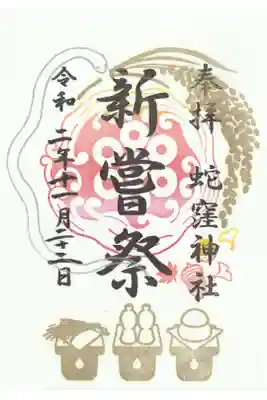 奉拝 蛇窪神社
新嘗祭
令和二年十一月二十二日